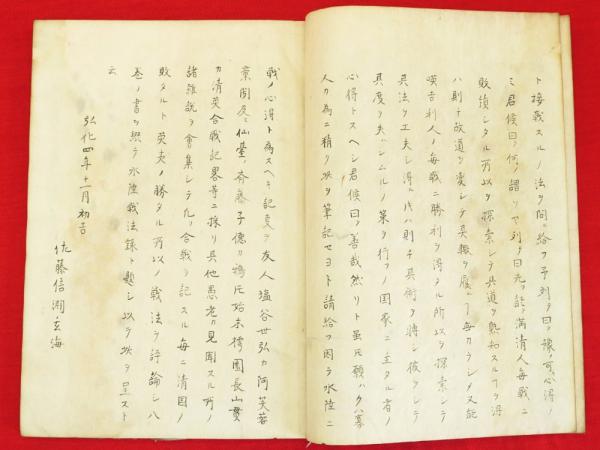 ト接戰スルノ法ヲ問ヒ給フ予列ヲ曰ク豫メ可心得ノ
ミ君侯曰ク何ノ謂ソヤ列ヲ曰先ツ能ク満清人毎戰ニ
敗潰シタル所以ヲ探索シテ其道ヲ熟知スルヿヲ得
ハ則チ故道ヲ変シテ其轍ヲ履ムヿ毋カランメ又能
暎吉利人ノ毎戰ニ勝利ヲ得タル所以ヲ探索シテ
其法ヲ工夫シ得ハ則チ其術ヲ將シ彼ヲシテ
其度ヲ失ハシムルノ策ヲ行フノ國家ニ主タル者ノ
心得トスヘシ君侯曰ク善哉然リト虽氏願ハクハ寡
人カ為ニ精ク此ヲ筆記セヨト請給フ因テ水陸ニ
戰ノ心得ト為スヘキ記ヲ友人塩谷世弘カ阿芙蓉
彙聞及ヒ仙臺ノ斉藤子德カ鴉片始末樗園長山貫
カ清英合戰記畧等ニ採リ其他愚老カ見聞スル所ノ
諸雜説ヲ會集シテ凢ソ合戰ヲ記スル毎ニ清國ノ
敗タル英夷ノ勝タル所以ノ戰法ヲ評論シ八
巻ノ書ヲ撰テ水陸戰法録ト題シ以テ此ヲ呈スト
云
弘化四年十一月初吉
佐藤信淵玄海